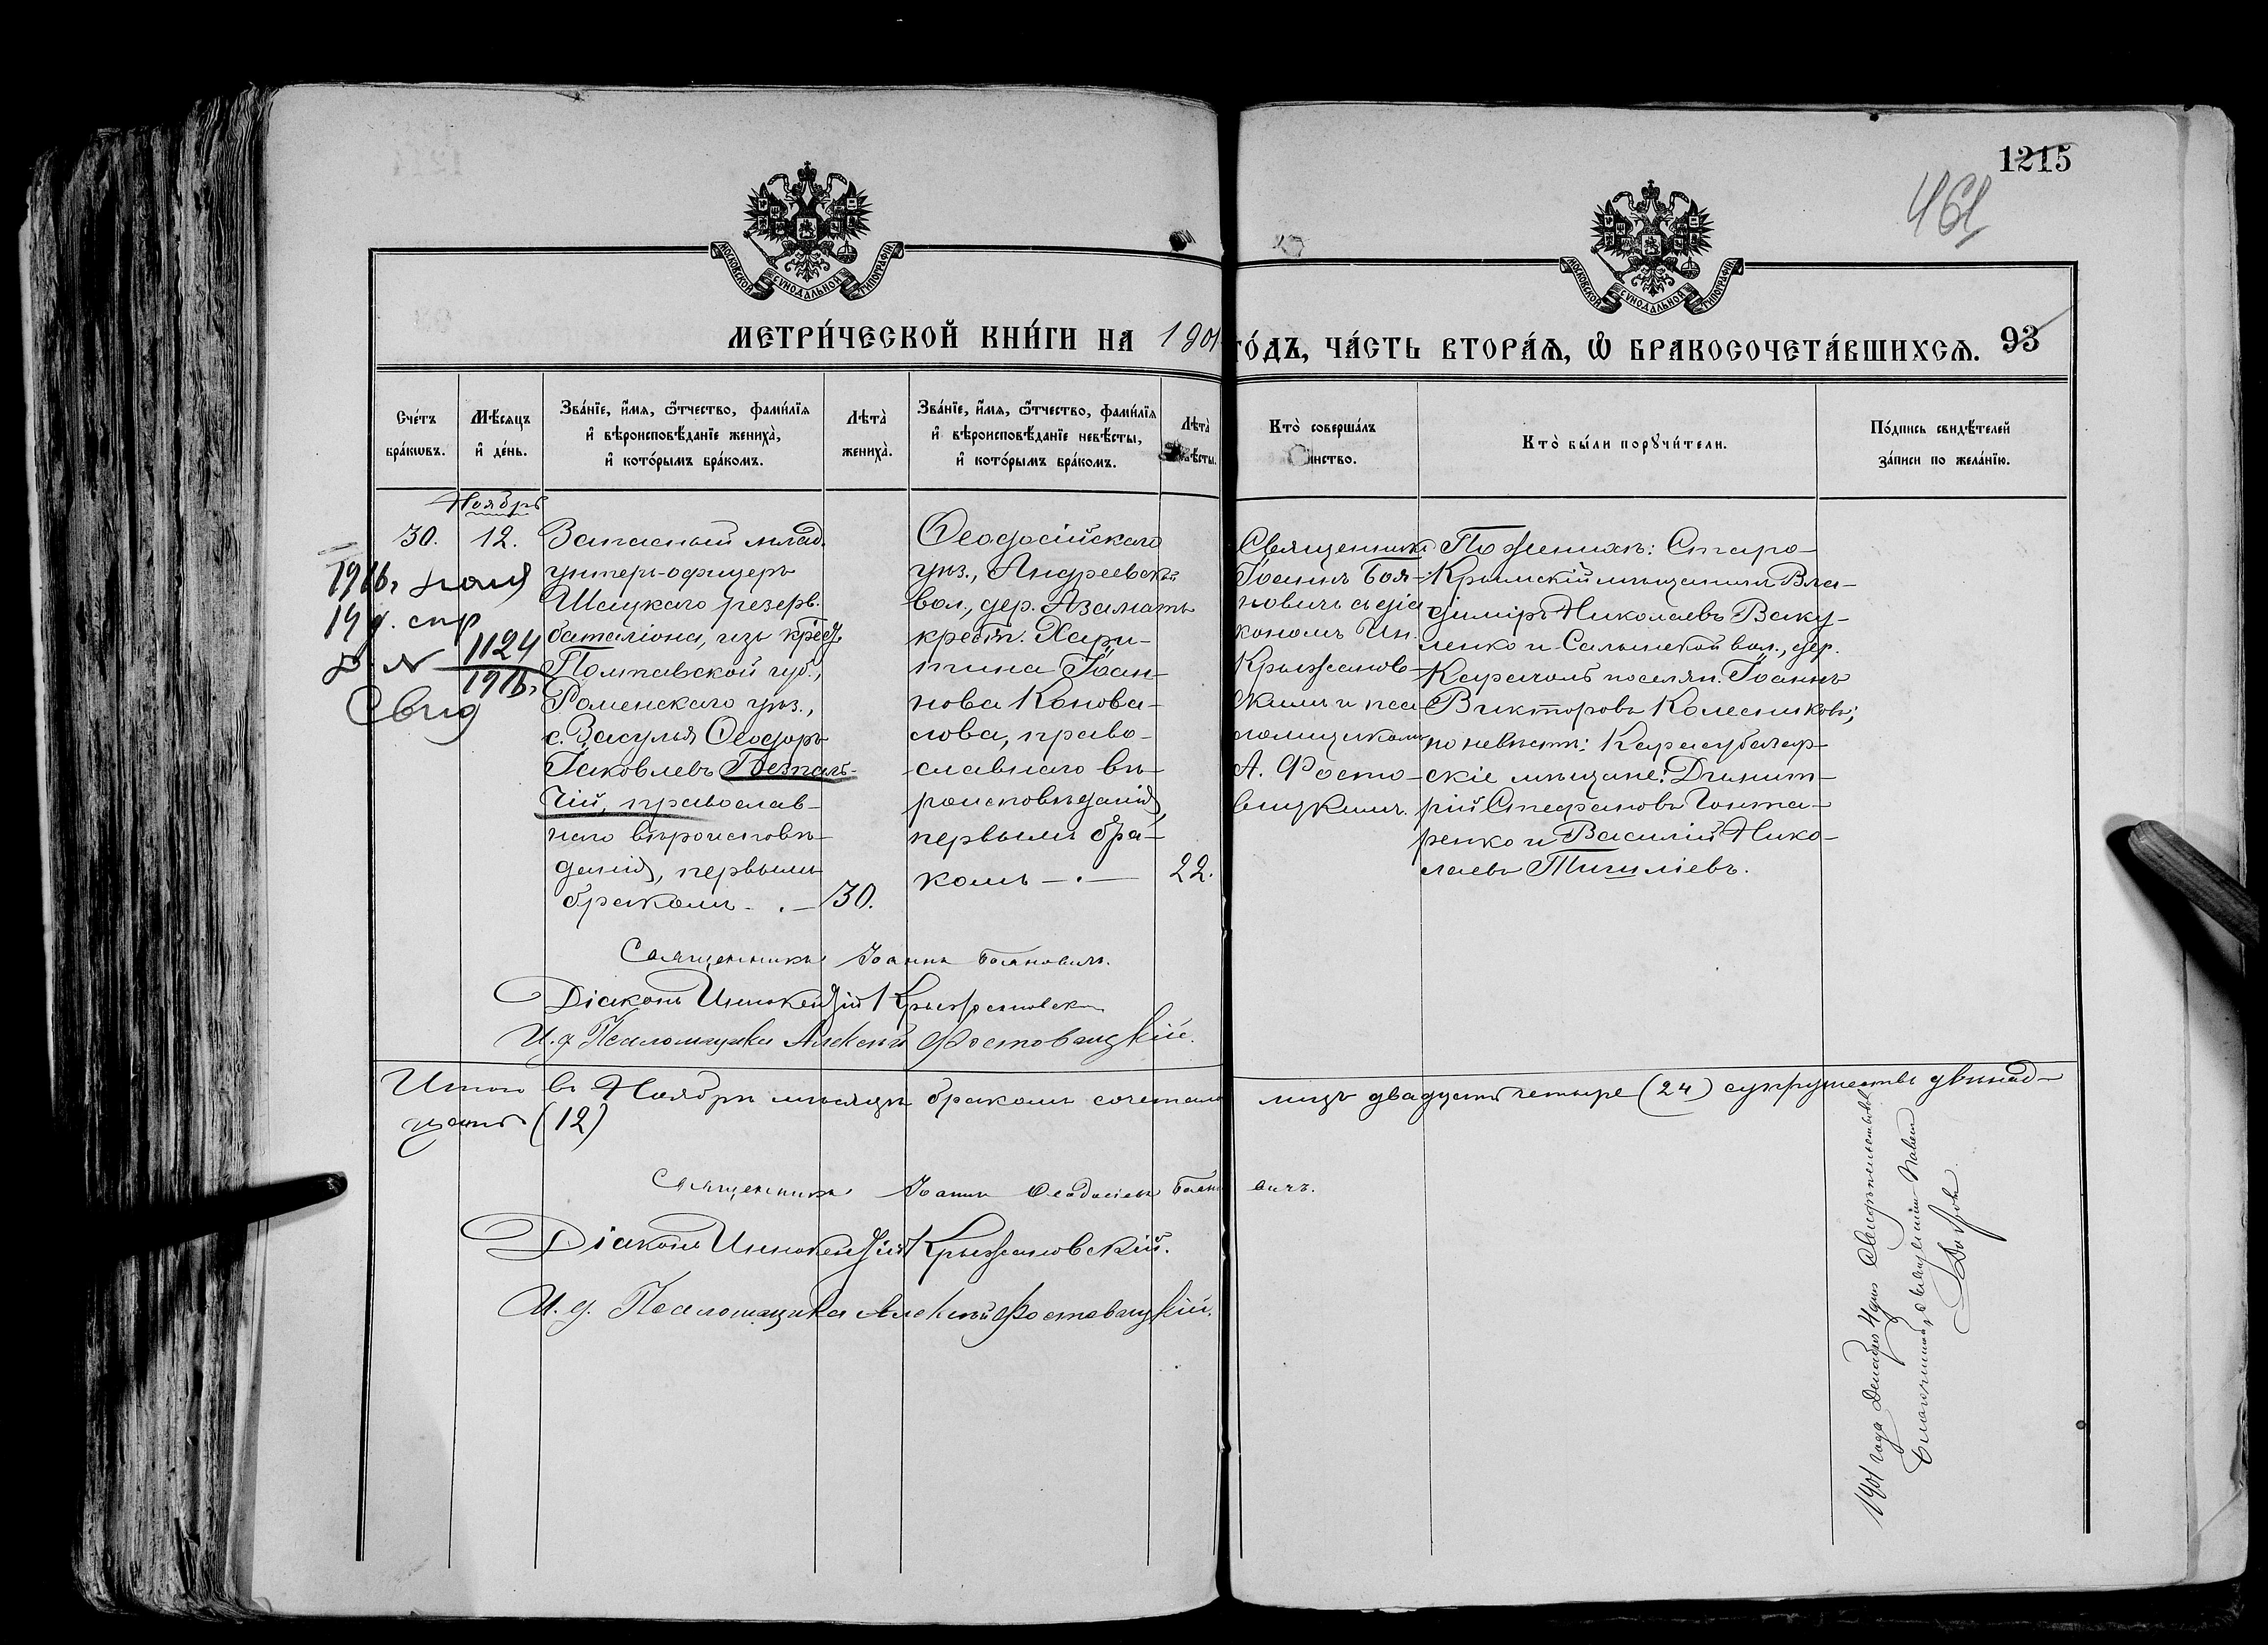 1215
461
МОСКОВСКОЙ СѴНОДАЛЬНОЙ ТИПОГРАФІИ
МОСКОВСКОЙ СѴНОДАЛЬНОЙ ТИПОГРАФІИ
МЕТРИ́ЧЕСКОЙ КНИ́ГИ НА 1901
ГО́ДЪ, ЧА́СТЬ ВТОРА́Ѧ, Ѡ҆ БРАКОСОЧЕТА́ВШИХСѦ. 93
Сче́тъ
бра́кѡвъ.
Мѣ́сѧцъ
и҆ де́нь.
Зва́нїе, и҆́мѧ, ѻ҆́тчество, фами́лїѧ
и҆ вѣроисповѣ́данїе жениха̀,
и҆ кото́рымъ бра́комъ.
Лѣта̀
жениха̀.
Зва́нїе, и҆́мѧ, ѻ҆́тчество, фами́лїѧ
и҆ вѣроисповѣ́данїе невѣ́сты,
и҆ кото́рымъ бра́комъ.
Лѣта̀
невѣ́сты.
Кто̀ соверша́лъ
таинство.
Кто̀ бы́ли порꙋчи́тели.
По́дпись свидѣ́телей
за́писи по жела́нїю.
Ноябрь
30.
12.
1916 г. мая
19 д.
№ 1124
1916 г.
Свид
Запасный млад.
унтеръ-офицеръ
Шацкаго резерв.
баталіона, изъ крест.
Полтавской губ.,
Роменскаго уѣз.,
с. Засулья Ѳеодоръ
Іаковлевъ Безпаль-
чій, православ-
наго вѣроисповѣ-
данія, первымъ
бракомъ -.-
30.
Ѳеодосійскаго
уѣз., Андреевской
вол., дер. Азаматъ
крест. Хари-
тина Іоан-
нова Конова-
лова, право-
славнаго вѣ-
роисповѣданія,
первымъ бра-
комъ -.-
22.
Священникъ
Іоаннъ Боя-
новичъ съ діа
кономъ Ин.
Крыжанов-
скимъ и пса
ломщикомъ
А. Росто-
вицкимъ.
По женихѣ: Старо-
Крымскій мѣщанинъ Вла-
диміръ Николаевъ Ваку-
ленко и Салынской вол., дер.
Карачоль поселян. Іоаннъ
Викторовъ Колесниковъ;
по невѣстѣ: Карасубазар-
скіе мѣщане: Димит-
рій Стефановъ Гонта-
ренко и Василій Нико-
лаевъ
Священникъ Іоаннъ Бояновичъ.
Діаконъ Иннокентій Крыжановскій
И. д. Псаломщика Алексѣй Ростовицкій.
Итого въ Ноябрѣ мѣсяцѣ бракомъ сочетало лицъ двадцать четыре (24) супружествъ двѣнад-
цать (12)
Священникъ Іоаннъ Ѳеодосіевъ Бояновичъ.
Діаконъ Иннокентій Крыжановскій.
И. д. Псаломщика Алексѣй Ростовицкій.
1901 года Декабря 4 дня Свидѣтельствовалъ
Благочинный, Священникъ Павелъ